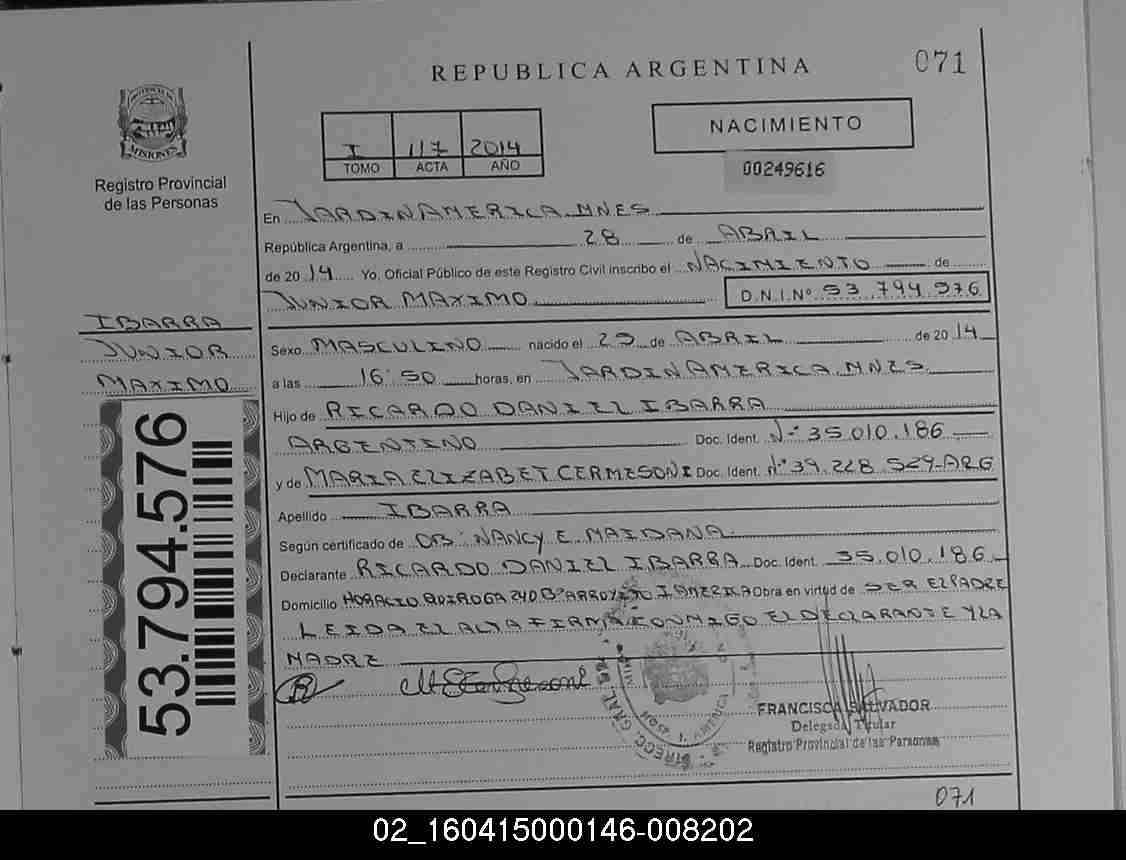 REPUBLICA ARGENTINA
071
MISIONES
Registro Provincial
de las Personas
I 117 2014
TOMO ACTA AÑO
NACIMIENTO
00249616
En JARDIN AMERICA. MNES
República Argentina, a 28 de ABRIL
de 2014 Yo, Oficial Público de este Registro Civil inscribo el NACIMIENTO de
JUNIOR MAXIMO D.N.I.Nº 53.794.576
IBARRA
JUNIOR
MAXIMO
53.794.576
Sexo MASCULINO nacido el 25 de ABRIL de 2014
a las 16:50 horas, en JARDIN AMERICA. MNES.
Hijo de RICARDO DANIEL IBARRA
ARGENTINO Doc. Ident. Nº 35.010.186
y de MARIA ELIZABET CERMESONI Doc. Ident. Nº 39.228.529-ARG
Apellido IBARRA
Según certificado de OB: NANCY E. MAIDANA.
Declarante RICARDO DANIEL IBARRA Doc. Ident. 35.010.186
Domicilio HORACIO QUIROGA 240 Bº ARROYITO J. AMERICA Obra en virtud de SER EL PADRE
LEIDA EL ACTA FIRMA CONMIGO EL DECLARANTE Y LA
MADRE
FRANCISCA SALVADOR
Delegada Titular
Registro Provincial de las Personas
071
02_160415000146-008202